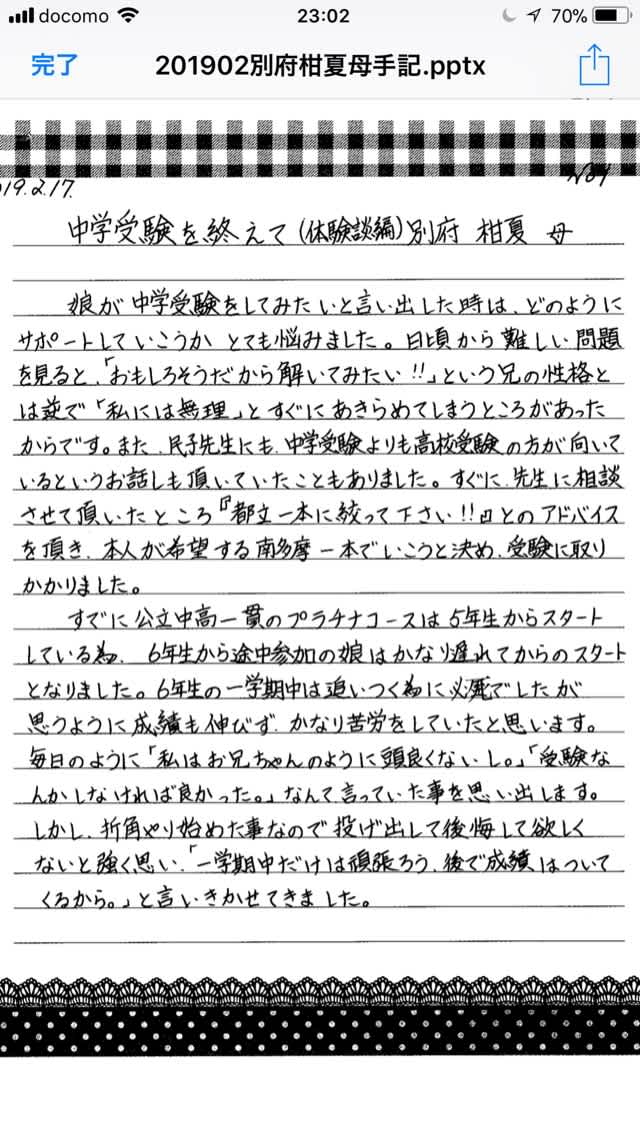 docomo 23:02 70%
完了 201902別府柑夏母手記.pptx
019.2.17. No1
中学受験を終えて(体験談編)別府 柑夏 母
娘が中学受験をしてみたいと言い出した時は、どのように
サポートしていこうか とても悩みました。日頃から難しい問題
を見ると、「おもしろそうだから解いてみたい!!」という兄の性格と
は逆で「私には無理」とすぐにあきらめてしまうところがあった
からです。また、民子先生にも、中学受験よりも高校受験の方が向いて
いるというお話しも頂いていたこともありました。すぐに、先生に相談
させて頂いたところ『都立一本に絞って下さい!!』とのアドバイス
を頂き、本人が希望する南多摩一本でいこうと決め、受験に取り
かかりました。
すでに公立中高一貫のプラチナコースは5年生からスタート
している為、6年生から途中参加の娘はかなり遅れてからのスタート
となりました。6年生の一学期中は追いつく為に必死でしたが
思うように成績も伸びず、かなり苦労をしていたと思います。
毎日のように「私はお兄ちゃんのように頭良くないし。」「受験な
んかしなければ良かった。」なんて言っていた事を思い出します。
しかし、折角やり始めた事なので投げ出して後悔して欲しく
ないと強く思い、「一学期中だけは頑張ろう、後で成績はついて
くるから。」と言いきかせてきました。